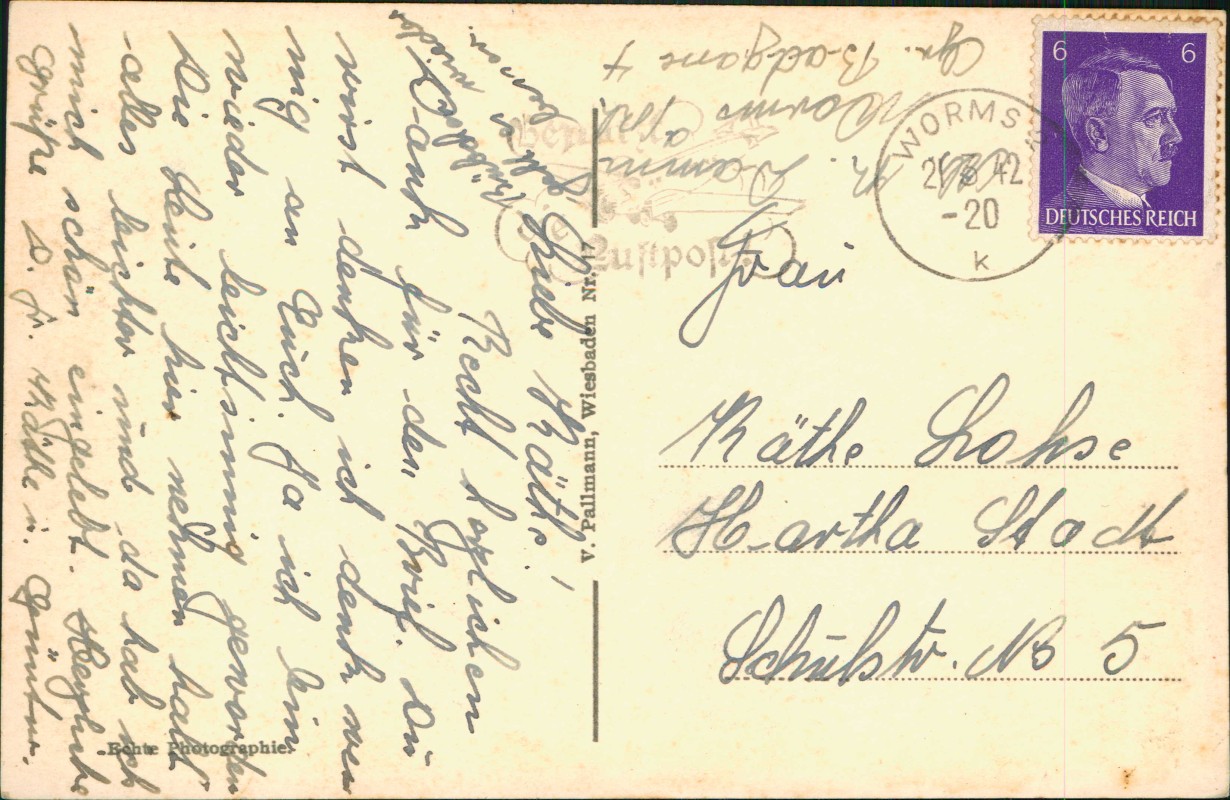 Liebe Käthe!
Recht herzlichen
Dank für den Brief. Du
wirst denken ich denk we-
nig an Euch. Ja ich bin
wieder leichtsinnig geworden
Die Leute hier nehmen halt
alles leichter und da hab ich
mich schön eingelebt. Herzliche
Grüße D. Fr. Käthe u. Günter.
wieder
Echte Photographie.
V. Pallmann, Wiesbaden Nr. 17
Benutzt
die
Luftpost
Worms
WORMS
42
-20
k
6 6
DEUTSCHES REICH
Frau
Käthe Lohse
Hartha Stadt
Schulstr. No 5